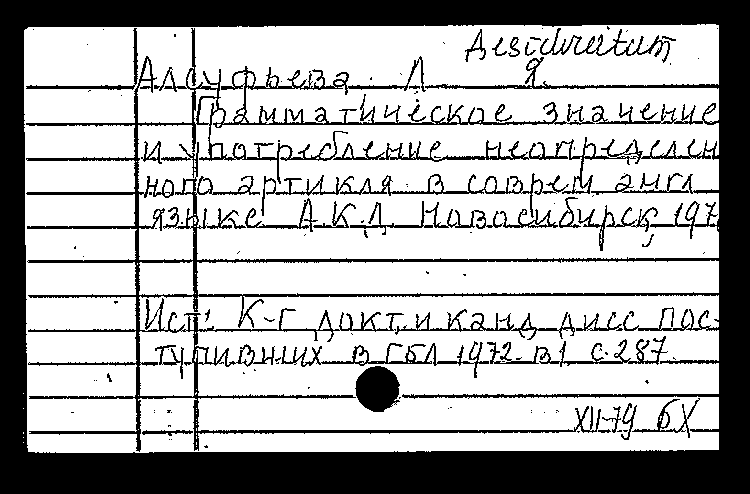 Desideratum
Алсуфьева Л Я.
Грамматическое значение
и употребление неопределен
ного артикля в соврем англ
языке А.К.Д. Новосибирск, 197
Ист: К-г докт, и канд дисс пос-
тупивших в ГБЛ 1972. в1 с.287.
XII-79 БХ